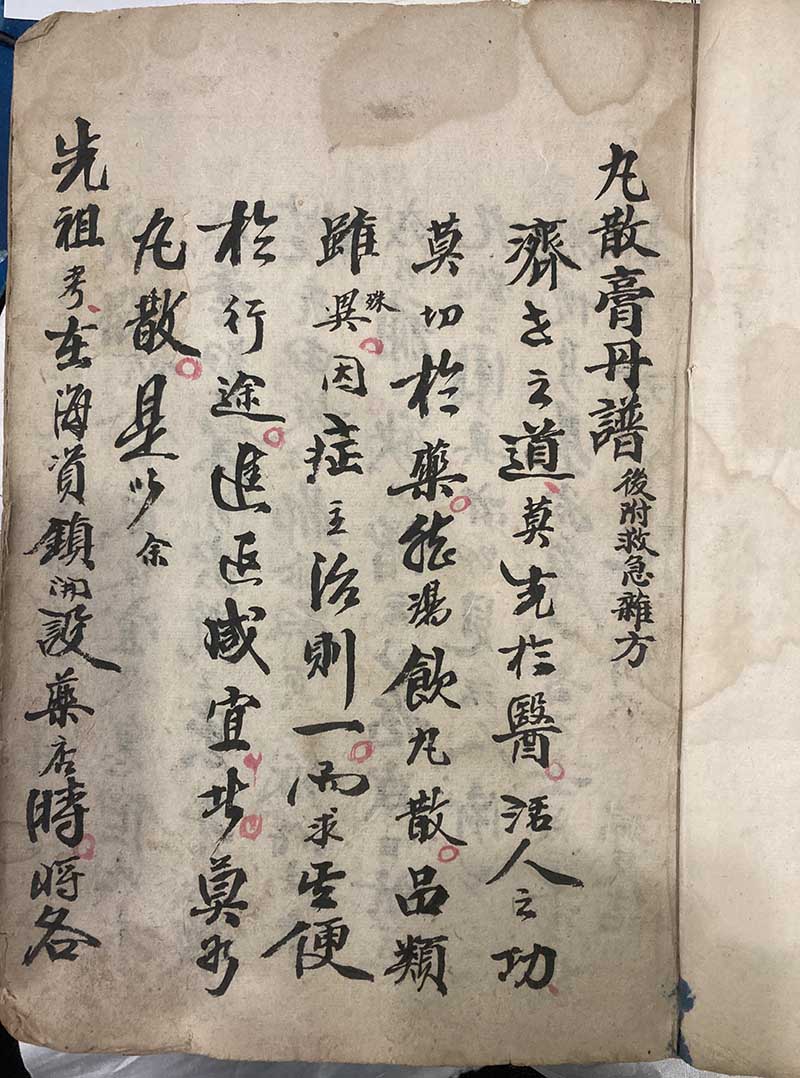 丸散膏丹譜後附救急雜方
濟世之道莫先於醫活人之功
莫切於藥然湯飲丸散品類
雖異殊因症主治則一而求其便
於行途進退咸宜者莫如
丸散是以余
先祖考在海鎮開設藥店時將各